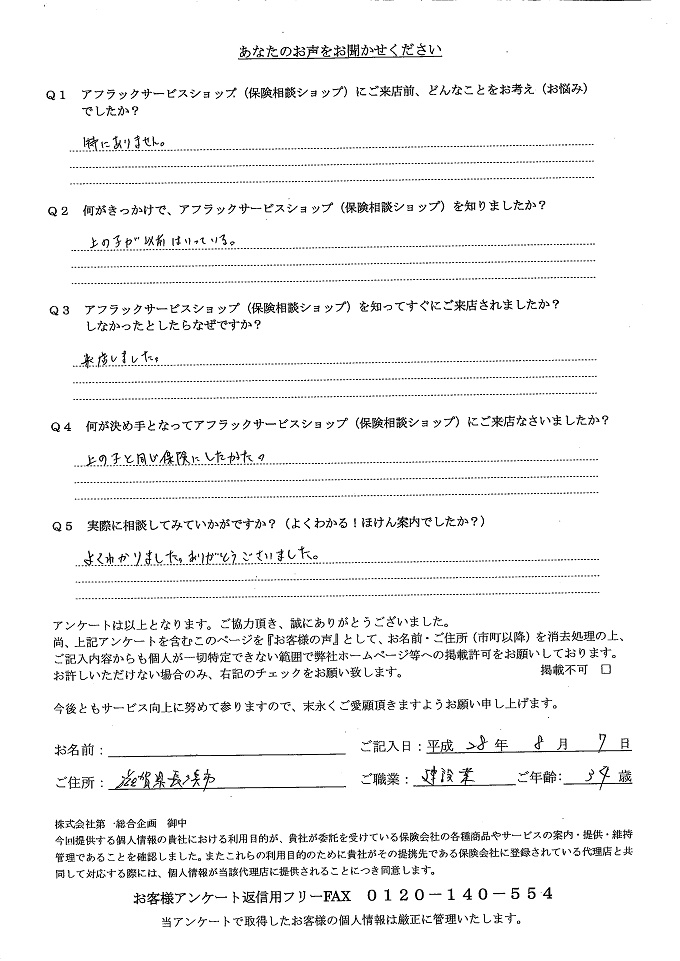 あなたのお声をお聞かせください
Q1 アフラックサービスショップ（保険相談ショップ）にご来店前、どんなことをお考え（お悩み）
でしたか？
特にありません。
Q2 何がきっかけで、アフラックサービスショップ（保険相談ショップ）を知りましたか？
上の子が以前はいっている。
Q3 アフラックサービスショップ（保険相談ショップ）を知ってすぐにご来店されましたか？
しなかったとしたらなぜですか？
来店しました。
Q4 何が決め手となってアフラックサービスショップ（保険相談ショップ）にご来店なさいましたか？
上の子と同じ保険にしたかた。
Q5 実際に相談してみていかがですか？（よくわかる！ほけん案内でしたか？）
よくわかりました。ありがとうございました。
アンケートは以上となります。ご協力頂き、誠にありがとうございました。
尚、上記アンケートを含むこのページを『お客様の声』として、お名前・ご住所（市町以降）を消去処理の上、
ご記入内容からも個人が一切特定できない範囲で弊社ホームページ等への掲載許可をお願いしております。
お許しいただけない場合のみ、右記のチェックをお願い致します。 掲載不可 □
今後ともサービス向上に努めて参りますので、末永くご愛顧頂きますようお願い申し上げます。
お名前： ご記入日：平成 28 年 8 月 7 日
ご住所： 滋賀県長浜市 ご職業： 建設業 ご年齢： 34 歳
株式会社第一総合企画 御中
今回提供する個人情報の貴社における利用目的が、貴社が委託を受けている保険会社の各種商品やサービスの案内・提供・維持
管理であることを確認しました。またこれらの利用目的のために貴社がその提携先である保険会社に登録されている代理店と共
同して対応する際には、個人情報が当該代理店に提供されることにつき同意します。
お客様アンケート返信用フリーFAX 0120－140－554
当アンケートで取得したお客様の個人情報は厳正に管理いたします。